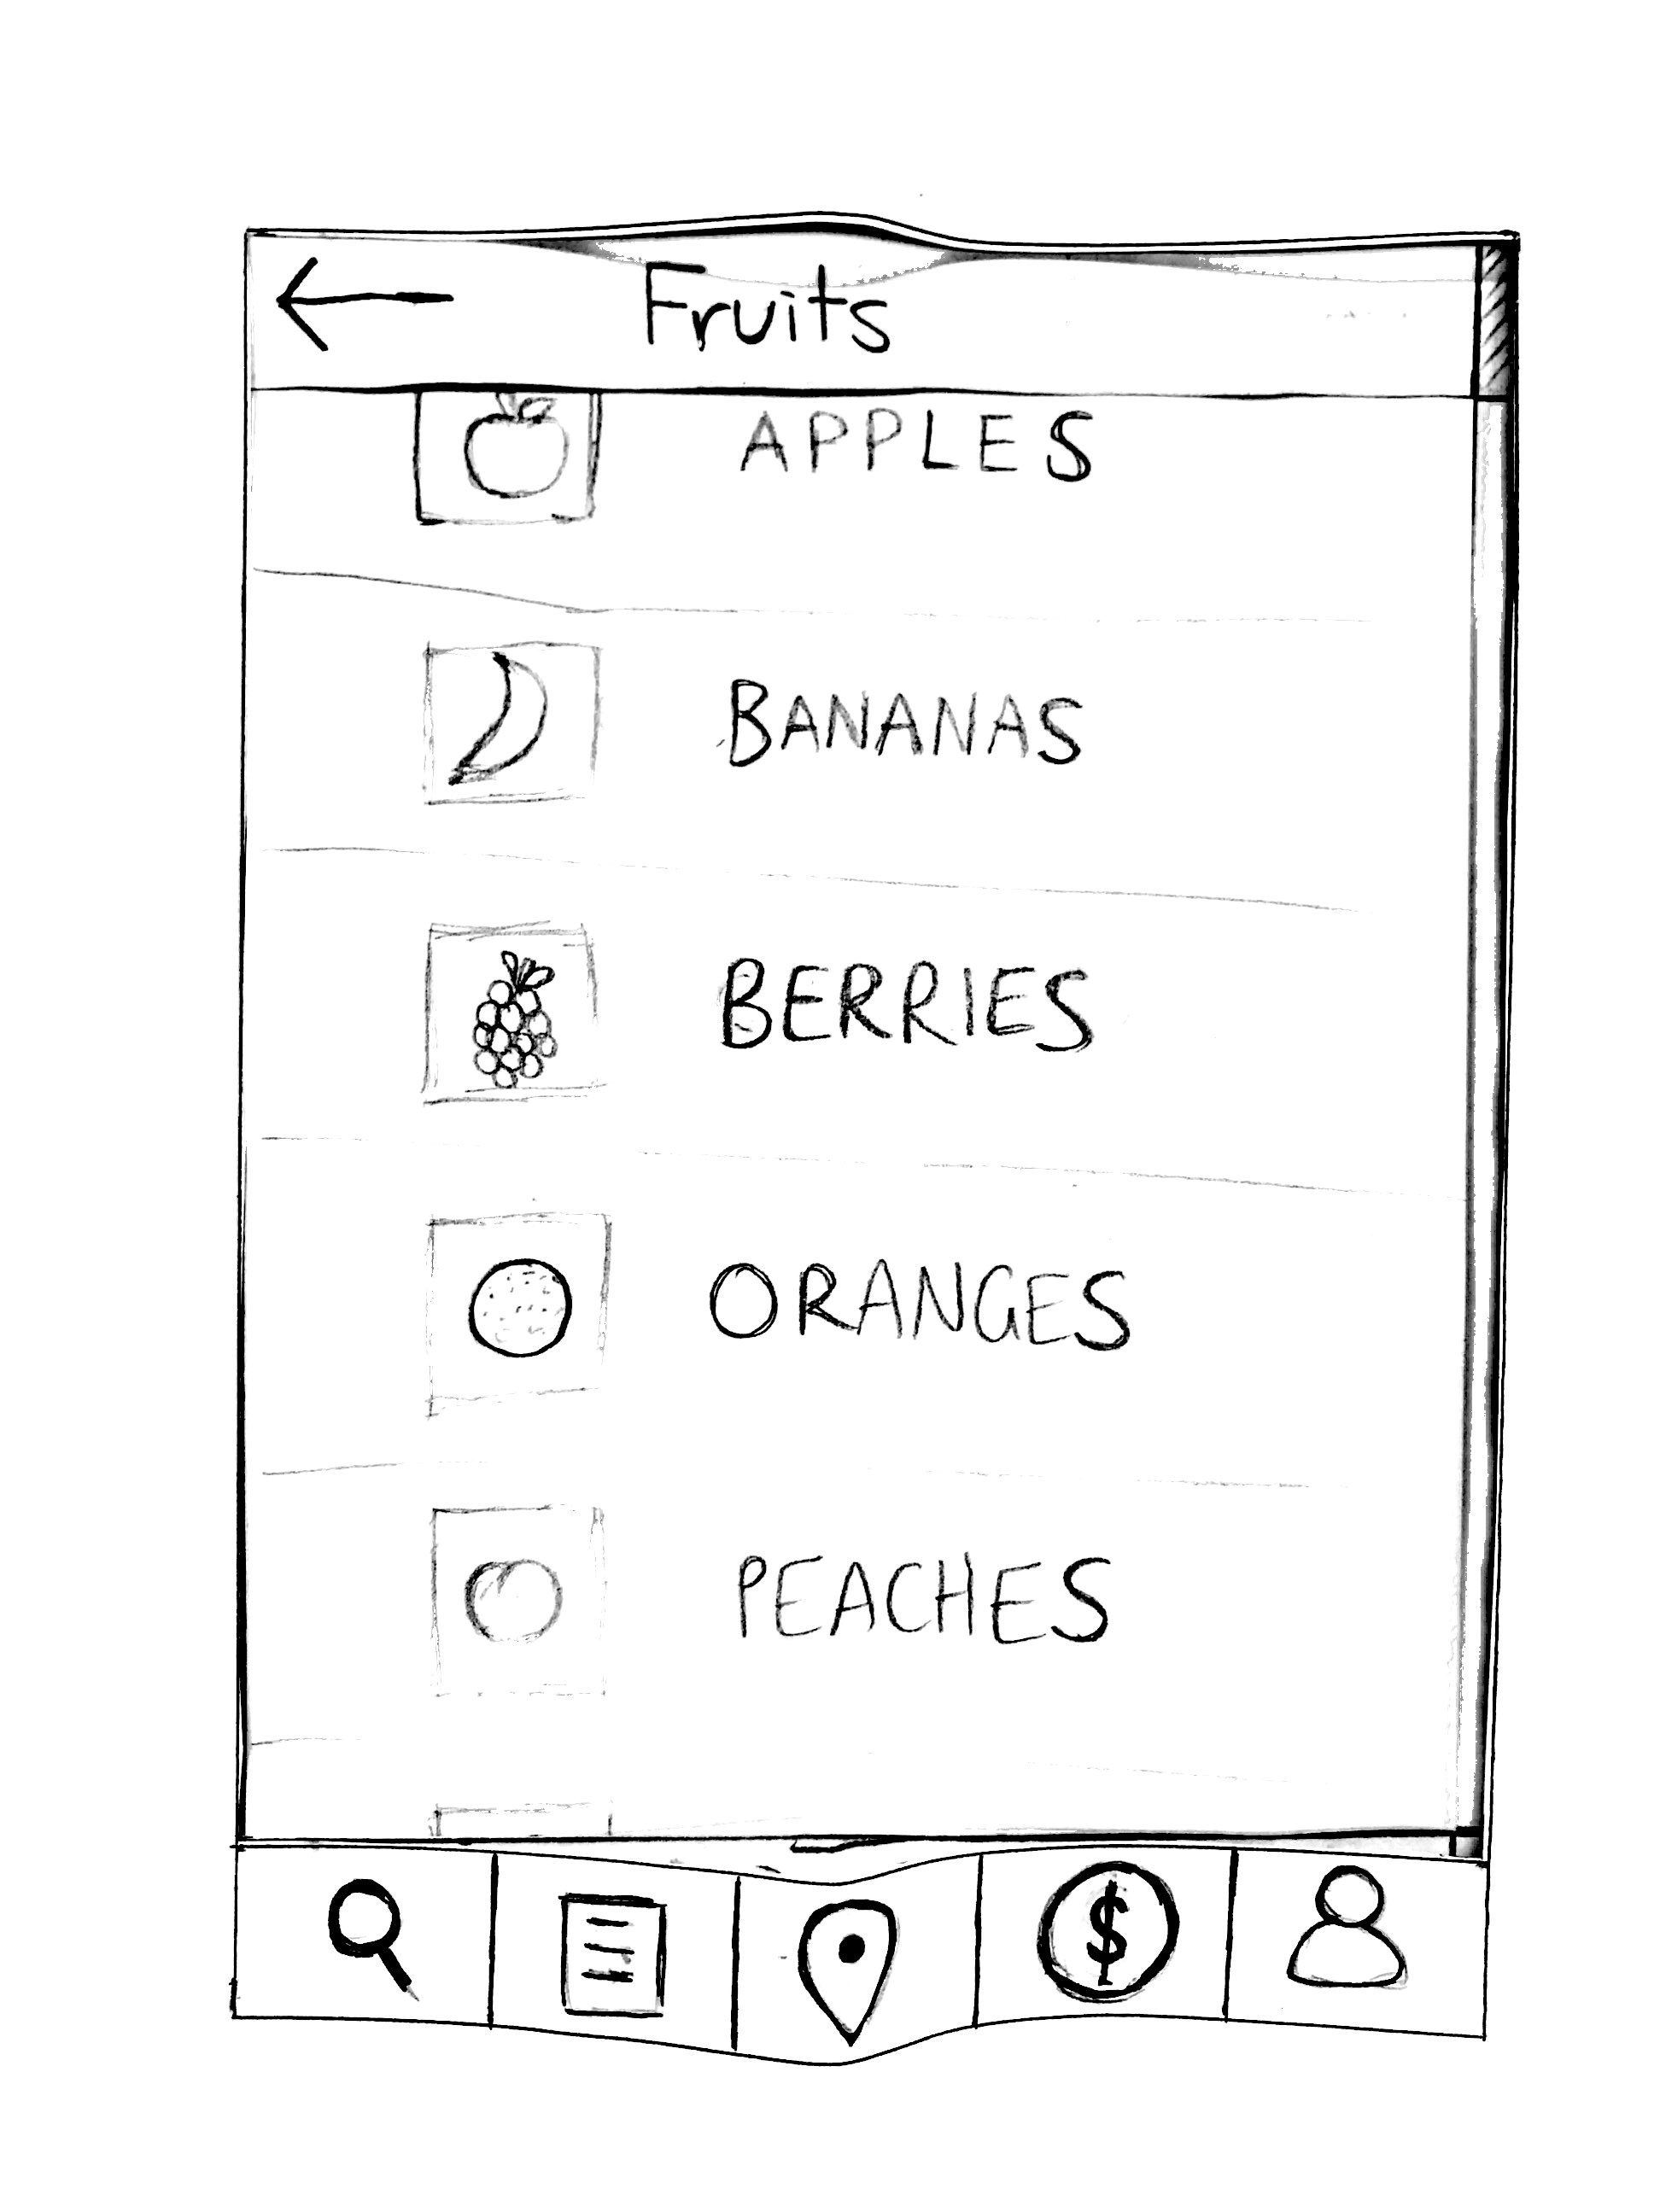 Fruits
APPLES
BANANAS
BERRIES
ORANGES
PEACHES
$